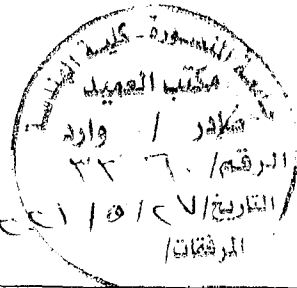 جامعة المنصورة - كلية الهندسة
مكتب العميد
صادر / وارد
الرقم / ٣٣٦٠
التاريخ / ٢٧ / ٥ / ٢٢١
المرفقات /